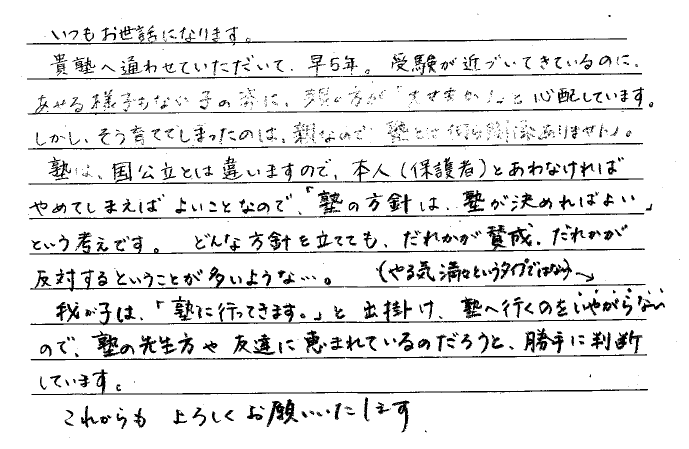 いつもお世話になります。
貴塾へ通わせていただいて、早5年。 受験が近づいてきているのに、
あせる様子もない子の姿に、親の方が「大丈夫か!」と心配しています。
しかし、そう育ててしまったのは、親なので「塾とは何の関係ありません」。
塾は、国公立とは違いますので、本人(保護者)とあわなければ
やめてしまえば よいことなので、「塾の方針は、塾が決めればよい」
という考えです。 どんな方針を立てても、だれかが賛成、だれかが
反対するということが多いような…。 (やる気満々というタイプではなく)→
我が子は、「塾に行ってきます。」と 出掛け、塾へ行くのをいやがらない
ので、塾の先生方や 友達に恵まれているのだろうと、勝手に判断
しています。
これからも よろしく お願いいたします